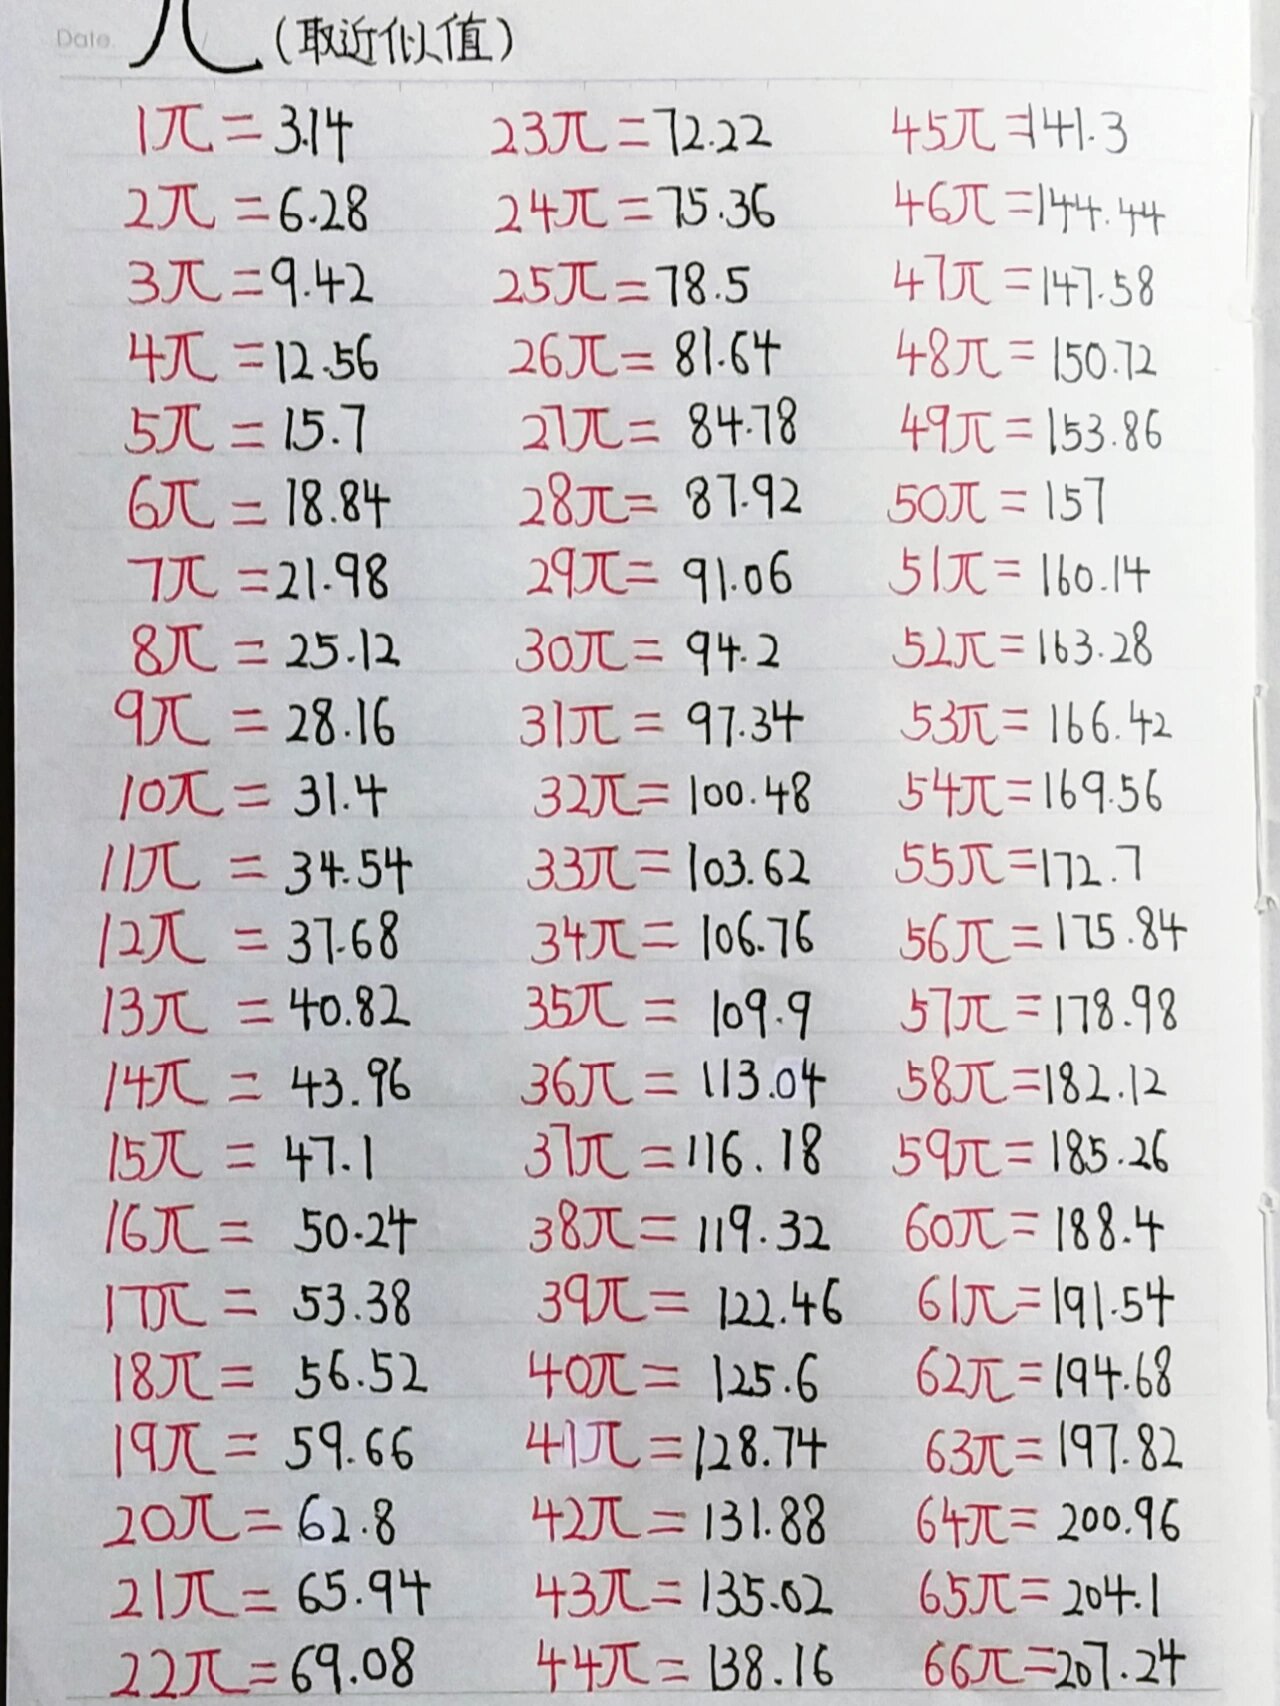 Date.
π (取近似值)
1π=3.14
2π=6.28
3π=9.42
4π=12.56
5π=15.7
6π=18.84
7π=21.98
8π=25.12
9π=28.16
10π=31.4
11π=34.54
12π=37.68
13π=40.82
14π=43.96
15π=47.1
16π=50.24
17π=53.38
18π=56.52
19π=59.66
20π=62.8
21π=65.94
22π=69.08
23π=72.22
24π=75.36
25π=78.5
26π=81.64
27π=84.78
28π=87.92
29π=91.06
30π=94.2
31π=97.34
32π=100.48
33π=103.62
34π=106.76
35π=109.9
36π=113.04
37π=116.18
38π=119.32
39π=122.46
40π=125.6
41π=128.74
42π=131.88
43π=135.02
44π=138.16
45π=141.3
46π=144.44
47π=147.58
48π=150.72
49π=153.86
50π=157
51π=160.14
52π=163.28
53π=166.42
54π=169.56
55π=172.7
56π=175.84
57π=178.98
58π=182.12
59π=185.26
60π=188.4
61π=191.54
62π=194.68
63π=197.82
64π=200.96
65π=204.1
66π=207.24